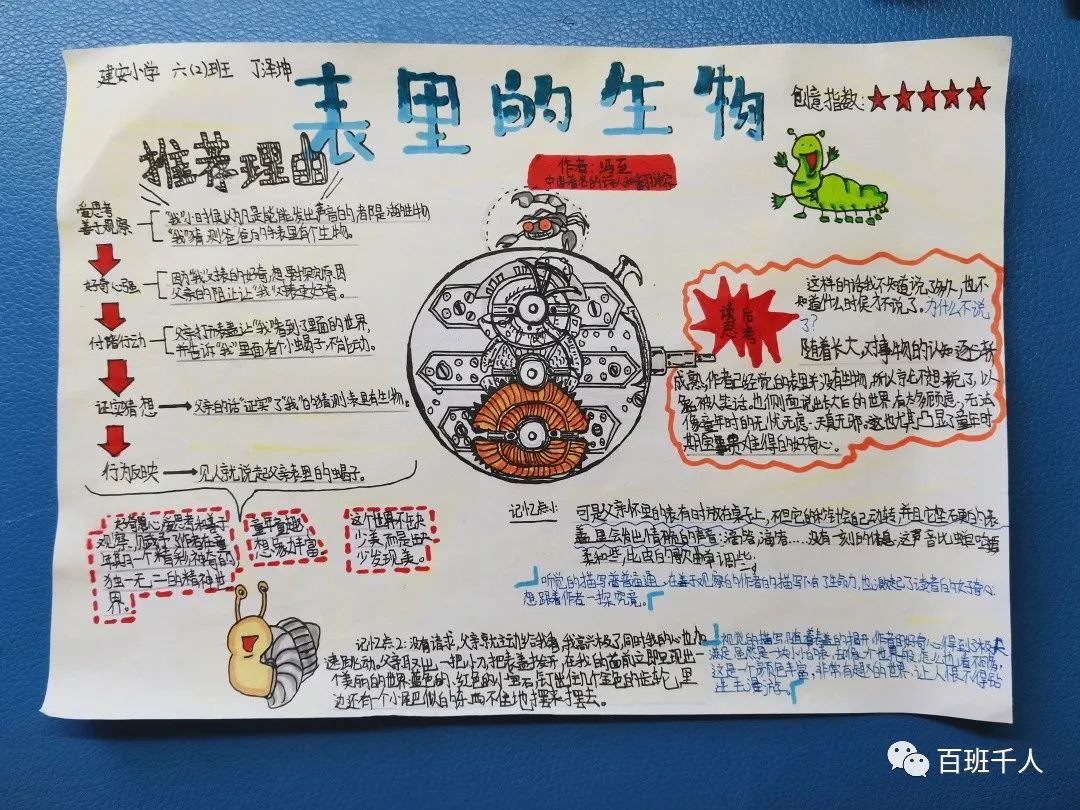 建安小学 六(2)班 丁泽坤
表里的生物
创意指数:★★★★★
推荐理由
作者:冯至
中国著名的诗人和翻译家
爱思考
善于观察
"我"小时候以为凡是能发出声音的都是活的生物
"我"猜测爸爸的手表里有个生物。
好奇心强
因为"我"对表的好奇,想要探究原因
父亲的阻止让"我"对表更好奇。
付诸行动
父亲打开表盖让"我"看到了里面的世界,
并告诉"我"里面有个小蝎子,不能动。
证实猜想
父亲的话"证实"了"我"的猜测表里有生物。
行为反映
见人就说起父亲表里的蝎子。
童年童趣
想象力丰富
这个世界不是缺
少美而是缺
少发现美。
读后
思考
这样的话我不知道说了多久,也不
知道什么时候才不说了。为什么不说
了?
随着长大,对事物的认知逐渐
成熟,作者已经觉的表里并没有生物,所以
像童年时的无忧无虑 天真无邪。这也尤其凸显了童年时
期宝贵难得的好奇心。
记忆点1:
可是父亲怀里的表有时放在桌子上,不但它的秒针会自己动转,并且它坚硬的表
盖里会发出清脆的声音:滴答,滴答……没有一刻的休息,这声音比蝉鸣要
柔和些,比虫的歌曲单调些。
听觉的描写普普通通,在善于观察的作者的描写下有了生命力,也激起了读者的好奇心
想跟着作者一探究竟。
记忆点2:没有请求,父亲就自动给我看,我高兴极了,同时我的心也加
速跳动。父亲取出一把小刀把表盖拨开,在我的面前立即呈现出一
个美丽的世界:蓝色的、红色的小宝石,钉住几个金色的齿轮,里
边还有一个小尾巴似的东西不住地摆来摆去。
视觉的描写,随着表盖的揭开,作者的好奇心得到
这是一个颜色丰富,非常有趣的世界,让人恨不得钻
百班千人